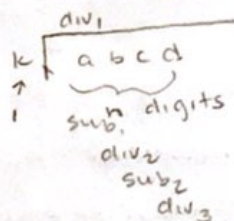 div1
k a b c d
1 n digits
sub1
div2
sub2
div3